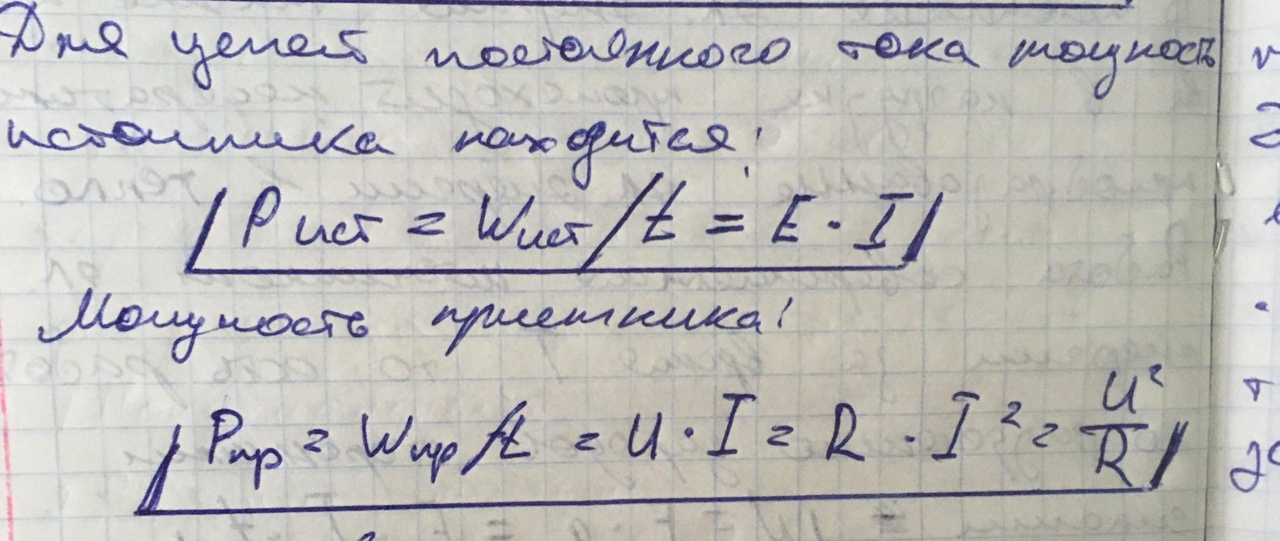 Для цепей постоянного тока мощность
источника находится:
Pист = Wист/t = E · I
Мощность приемника:
Pпр = Wпр/t = U · I = R · I² = U²/R